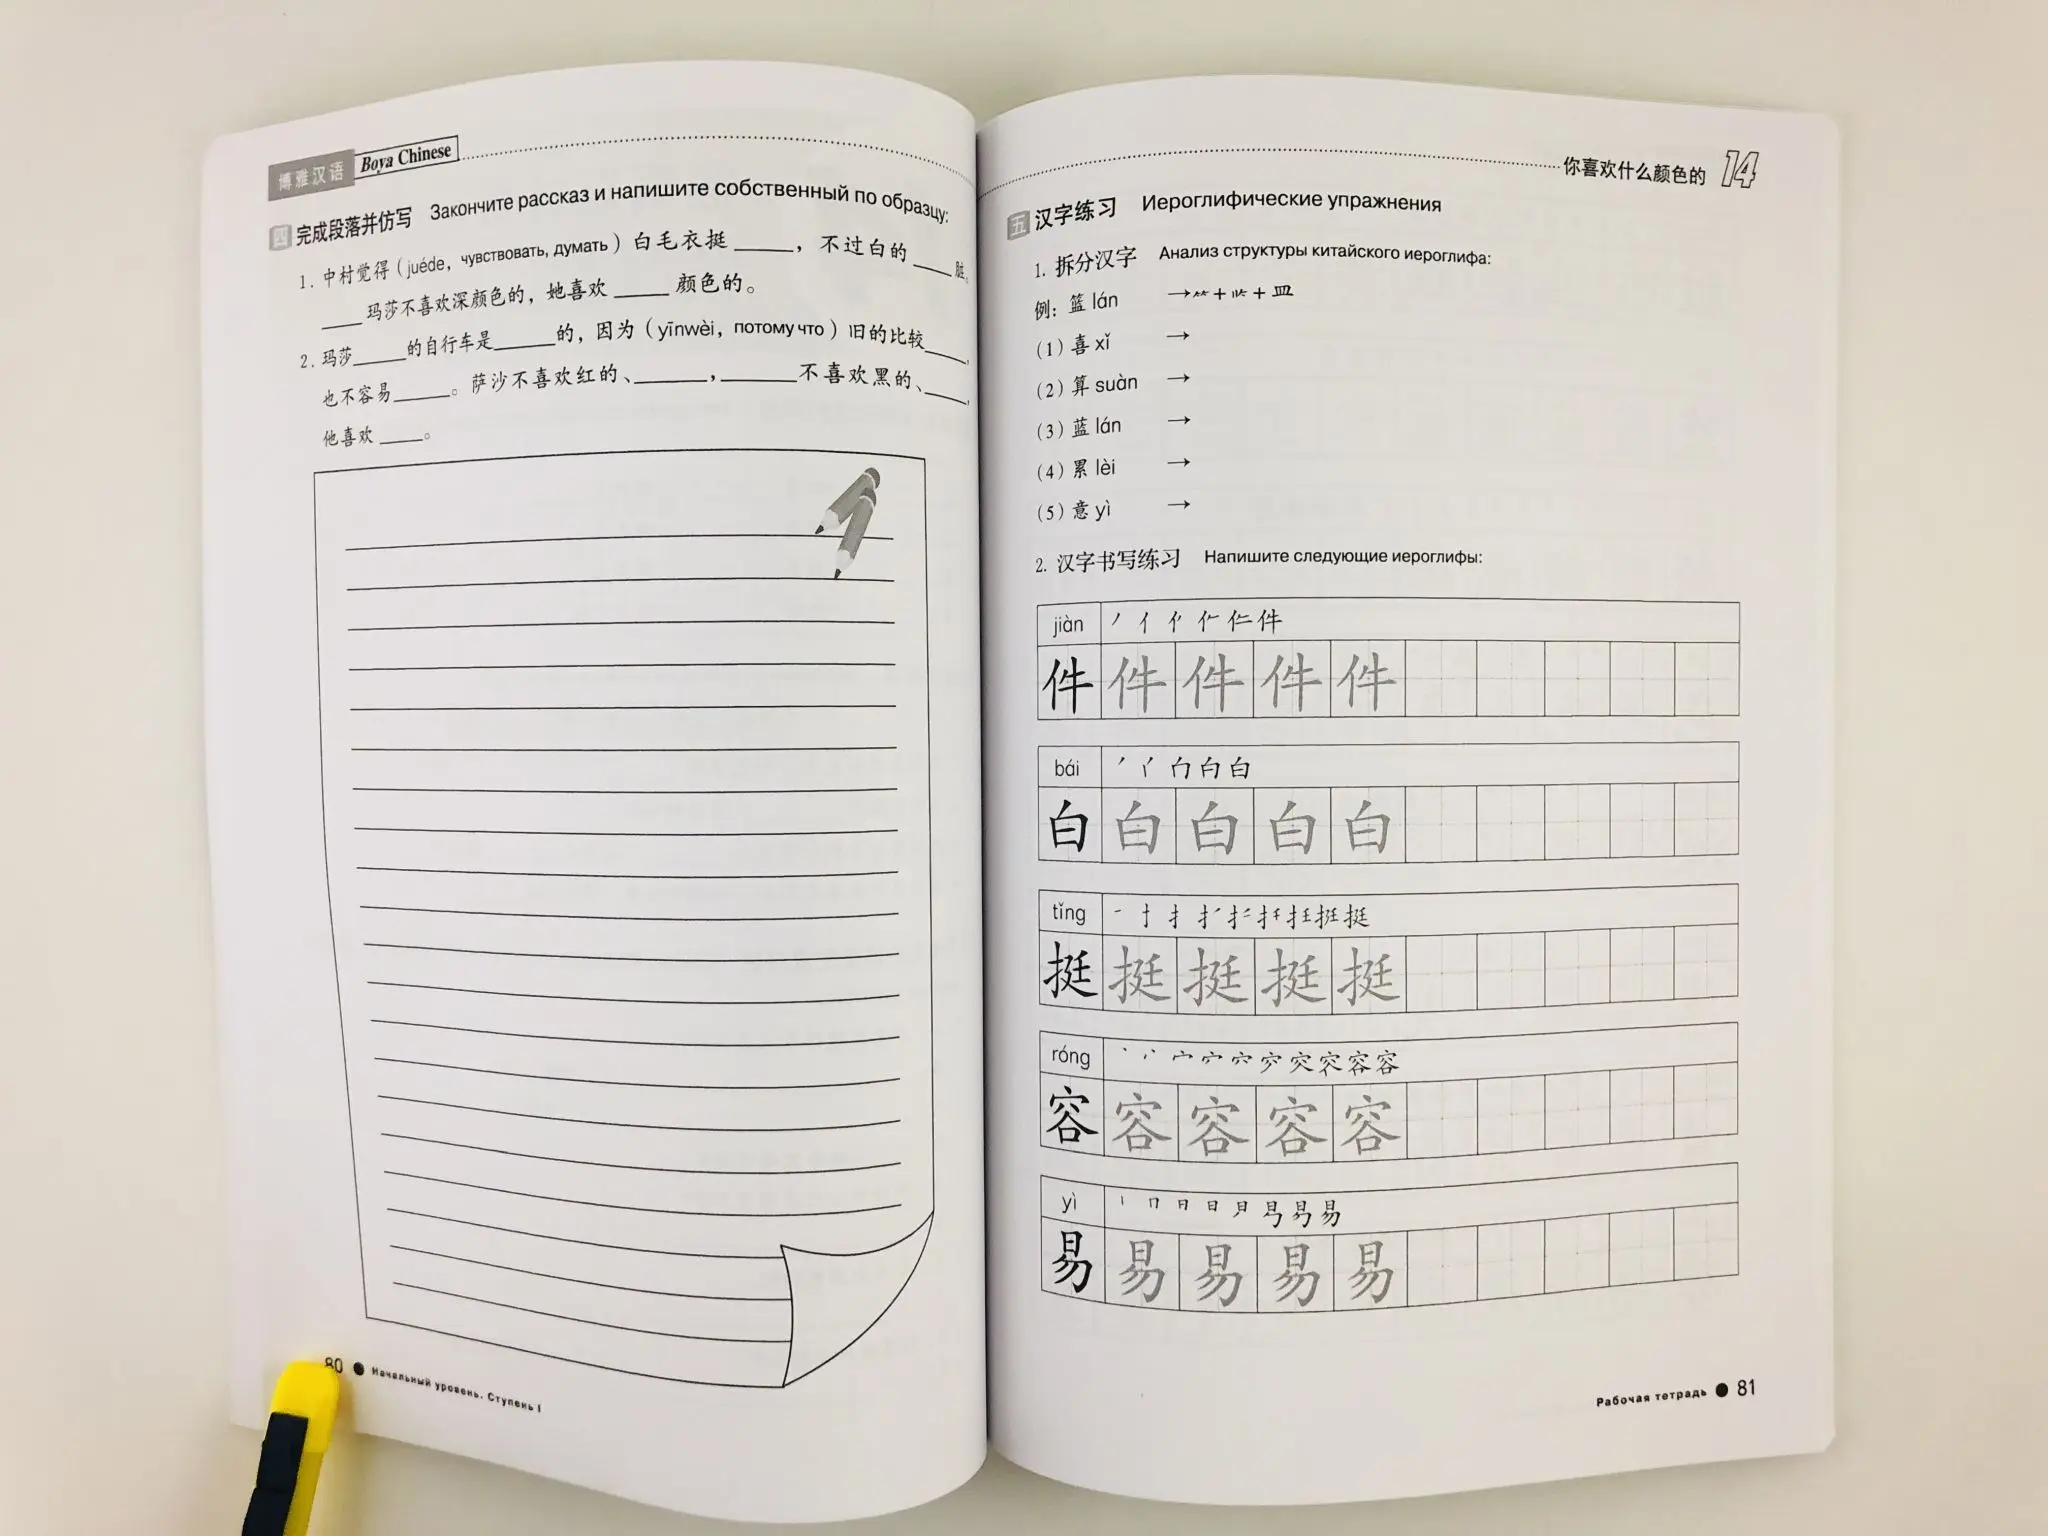 博雅汉语 Boya Chinese
四 完成段落并仿写 Закончите рассказ и напишите собственный по образцу:
1. 中村觉得(juéde, чувствовать, думать)白毛衣挺_____,不过白的____脏。
____玛莎不喜欢深颜色的,她喜欢_____颜色的。
2. 玛莎_____的自行车是_____的,因为(yīnwèi, потому что)旧的比较____,
也不容易_____。萨沙不喜欢红的、______,______不喜欢黑的、____,
他喜欢____。
80 ● Начальный уровень. Ступень I
你喜欢什么颜色的 14
五 汉字练习 Иероглифические упражнения
1. 拆分汉字 Анализ структуры китайского иероглифа:
例:篮 lán →⺮+〢+皿
(1)喜 xǐ →
(2)算 suàn →
(3)蓝 lán →
(4)累 lèi →
(5)意 yì →
2. 汉字书写练习 Напишите следующие иероглифы:
jiàn
件 件 件 件 件
bái
白 白 白 白 白
tǐng
挺 挺 挺 挺 挺
róng
容 容 容 容 容
yì
易 易 易 易 易
Рабочая тетрадь ● 81